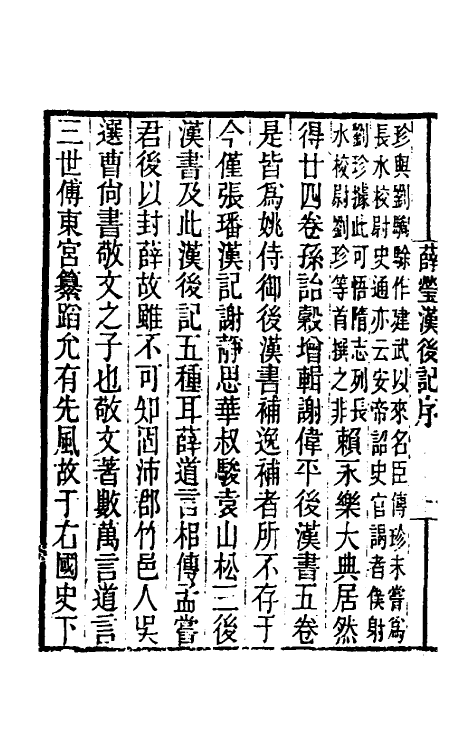 薛瑩漢後記序 一
珍與劉騊駼作建武以來名臣傳珍未嘗爲
長水校尉史通亦云安帝詔史官謁者僕射
劉珍據此可悟隋志列長
水校尉劉珍等首撰之非賴永樂大典居然
得廿四卷孫詒穀增輯謝偉平後漢書五卷
是皆爲姚侍御後漢書補逸補者所不存于
今僅張璠漢記謝靜思華叔駿袁山松二後
漢書及此漢後記五種耳薛道言相傳孟嘗
君後以封薛故雖不可知固沛郡竹邑人吳
選曹尙書敬文之子也敬文著數萬言道言
三世傅東宮纂蹈允有先風故于右國史下